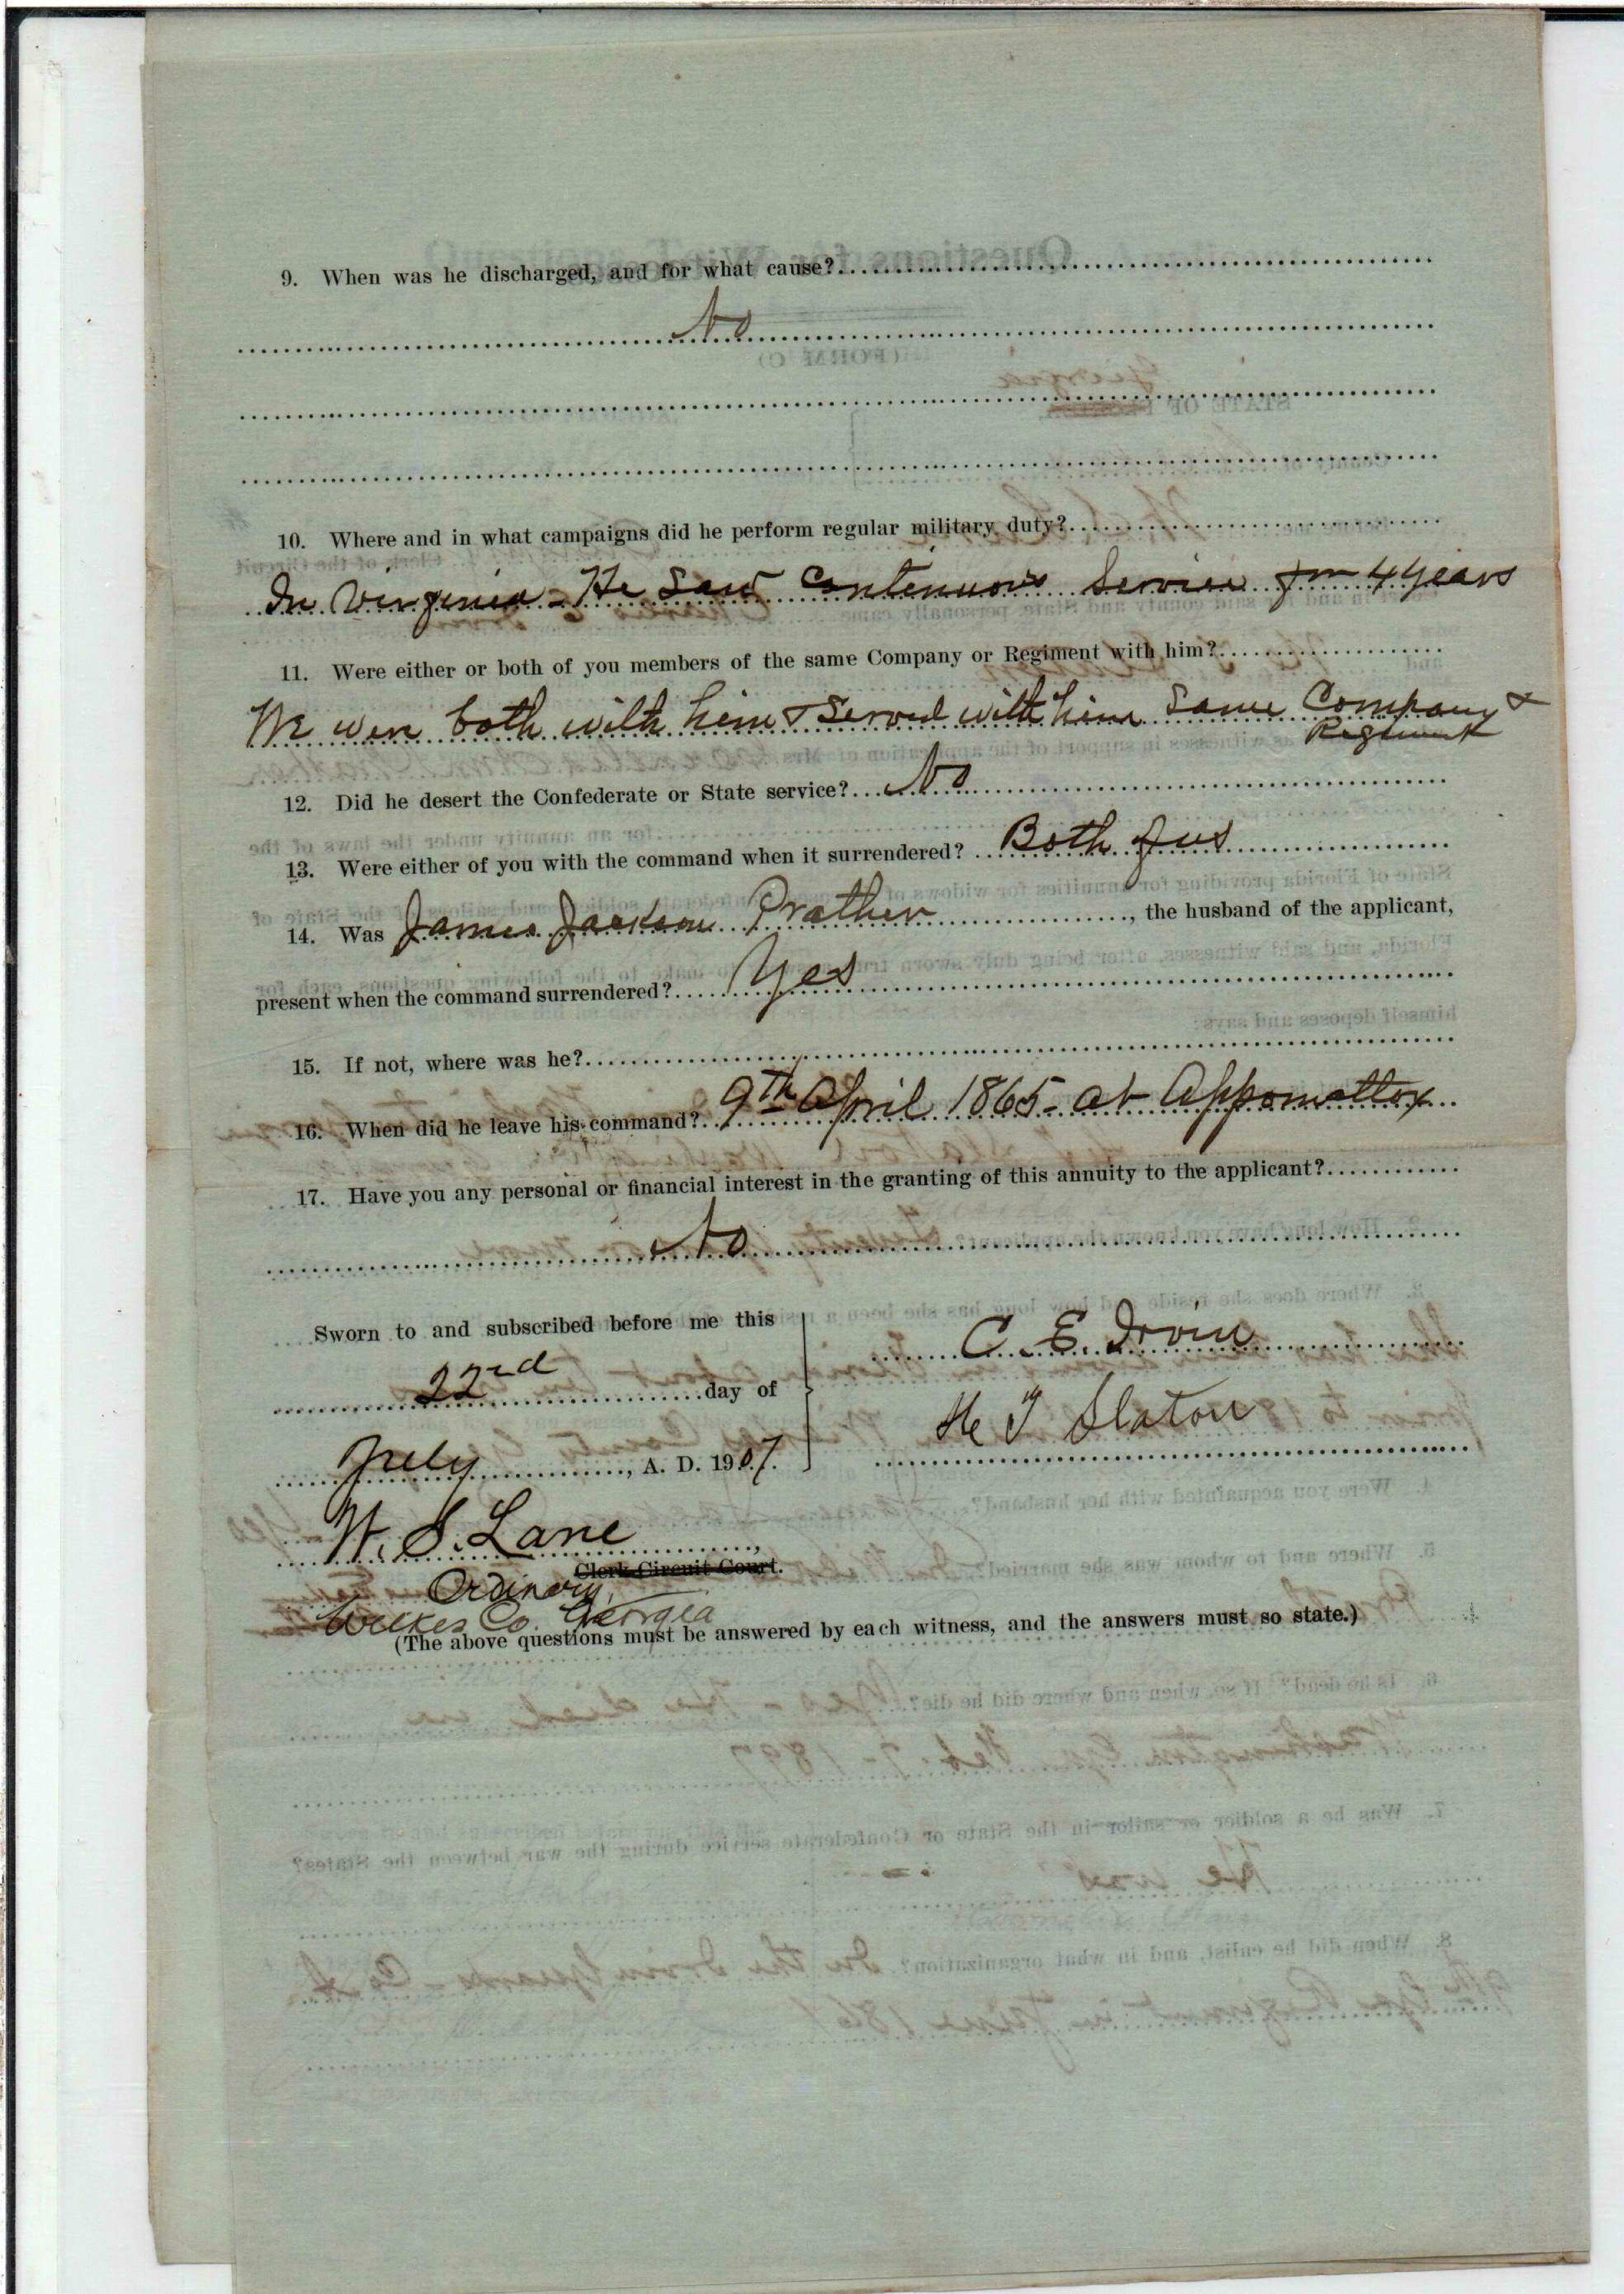 9. When was he discharged, and for what cause?
No
10. Where and in what campaigns did he perform regular military duty?
In Virginia - He Saw Contenuous Service for 4 years
11. Were either or both of you members of the same Company or Regiment with him?
We were both with him & Served with him Same Company &
Regiment
12. Did he desert the Confederate or State service? No
13. Were either of you with the command when it surrendered? Both of us
14. Was James Jackson Prather, the husband of the applicant,
present when the command surrendered? Yes
15. If not, where was he?
16. When did he leave his command? 9th April 1865 - at Appomattox
17. Have you any personal or financial interest in the granting of this annuity to the applicant?
No
Sworn to and subscribed before me this
C. E. Irvin
22nd day of
H T Slaton
July, A. D. 1907.
W. S. Lane,
Clerk Circuit Court.
Ordinary,
Wilkes Co. Georgia
(The above questions must be answered by each witness, and the answers must so state.)